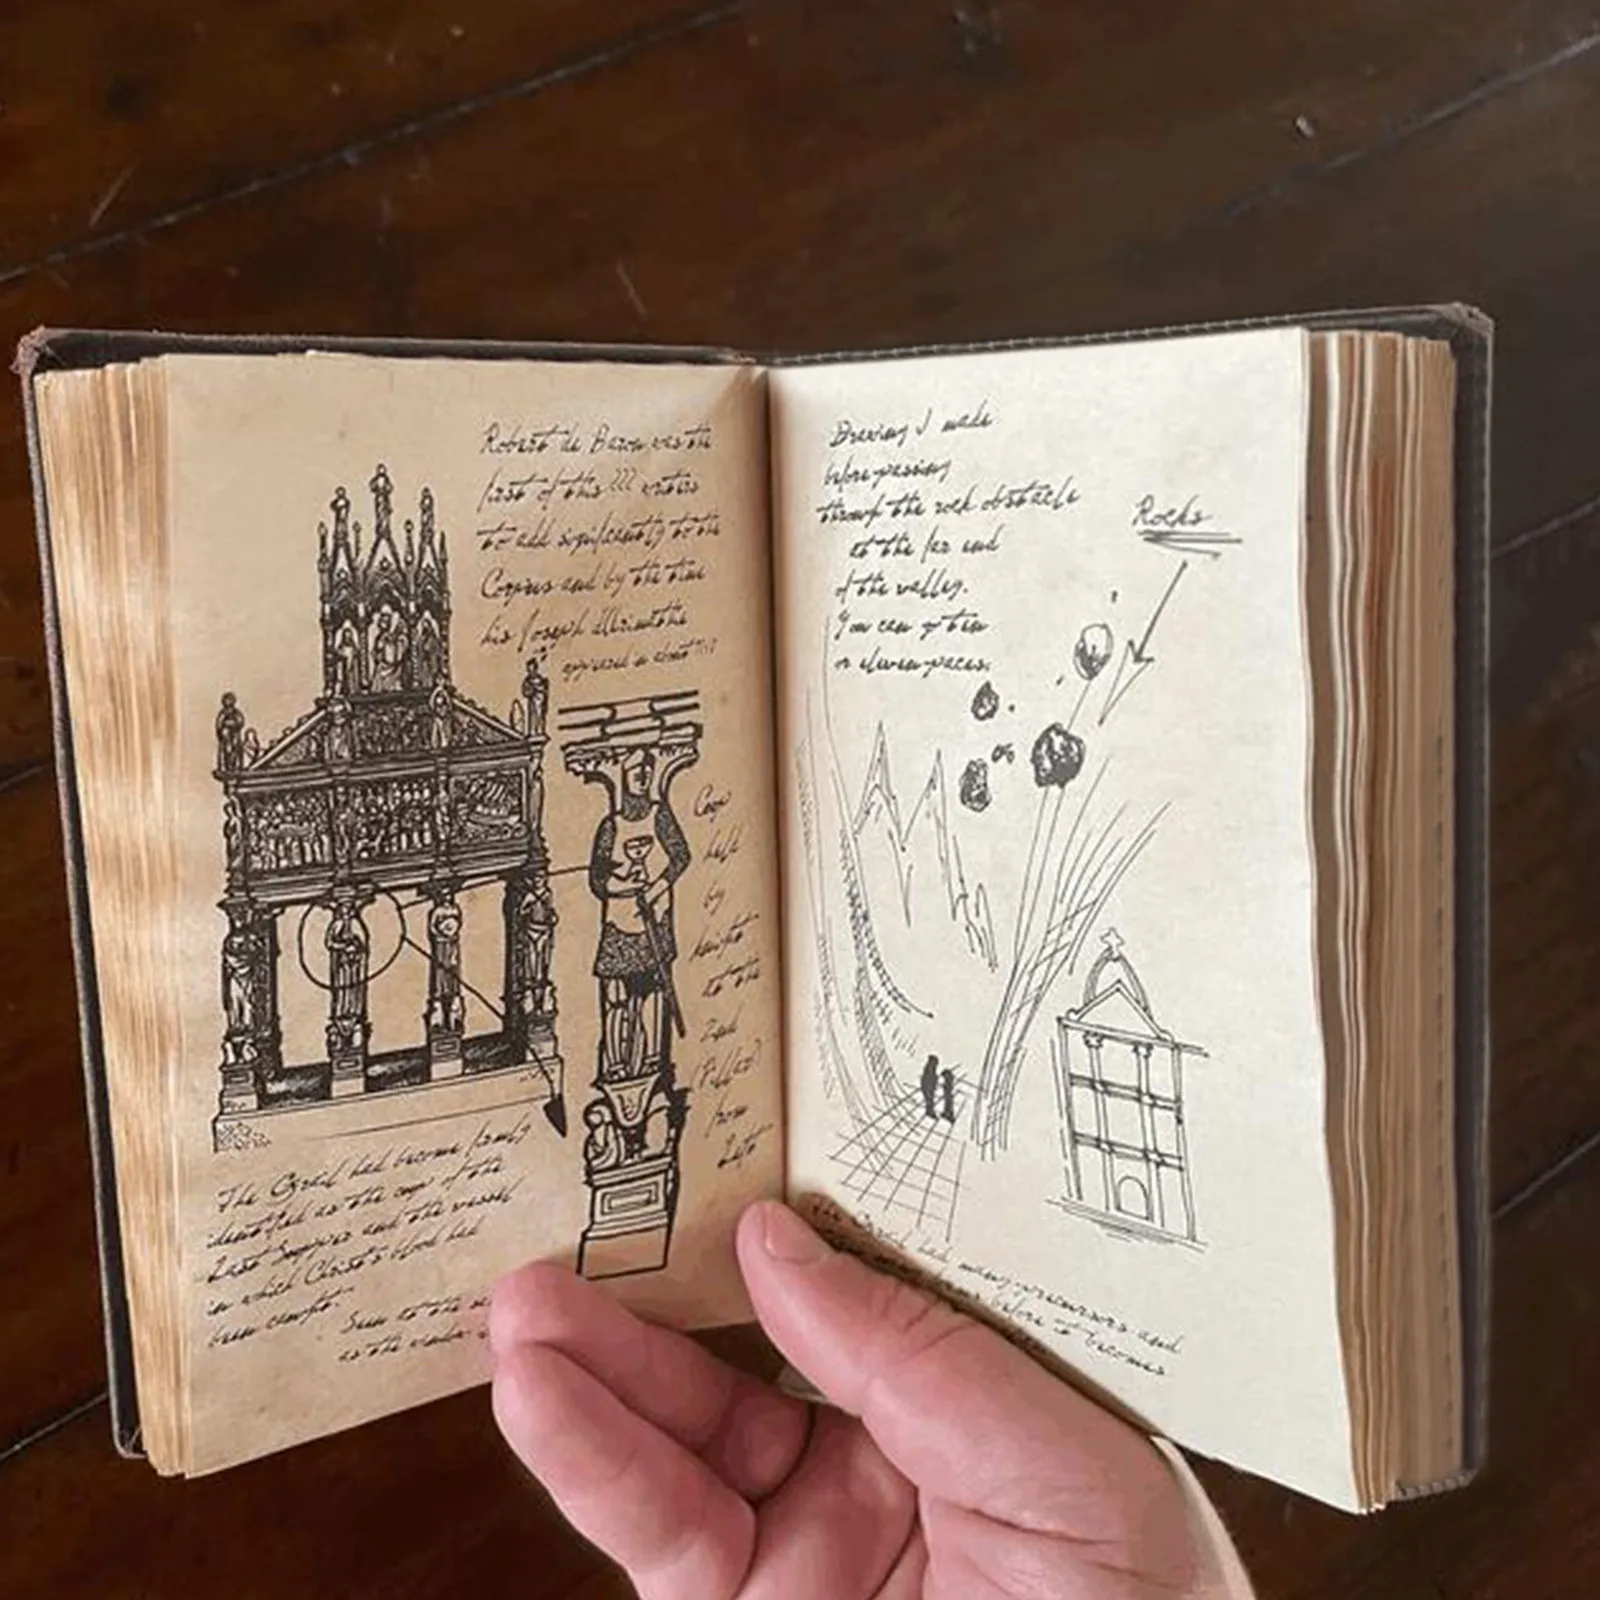 Robert de Baron was the
first of this ??? writers
to add significantly to the
Corpus and by the time
his Joseph
appeared in about
Cup
held
by
knight
to the
2nd
(Pillar)
from
Left
The Grail had become firmly
identified as the cup of the
Last Supper and the vessel
in which Christ's blood had
been caught.
Seen to the
as the
Drawing I made
before passing
through the rock obstacle
at the far end
of the valley.
You can go ten
or eleven paces.
Rocks
The Grail had many precursors and
before it becomes